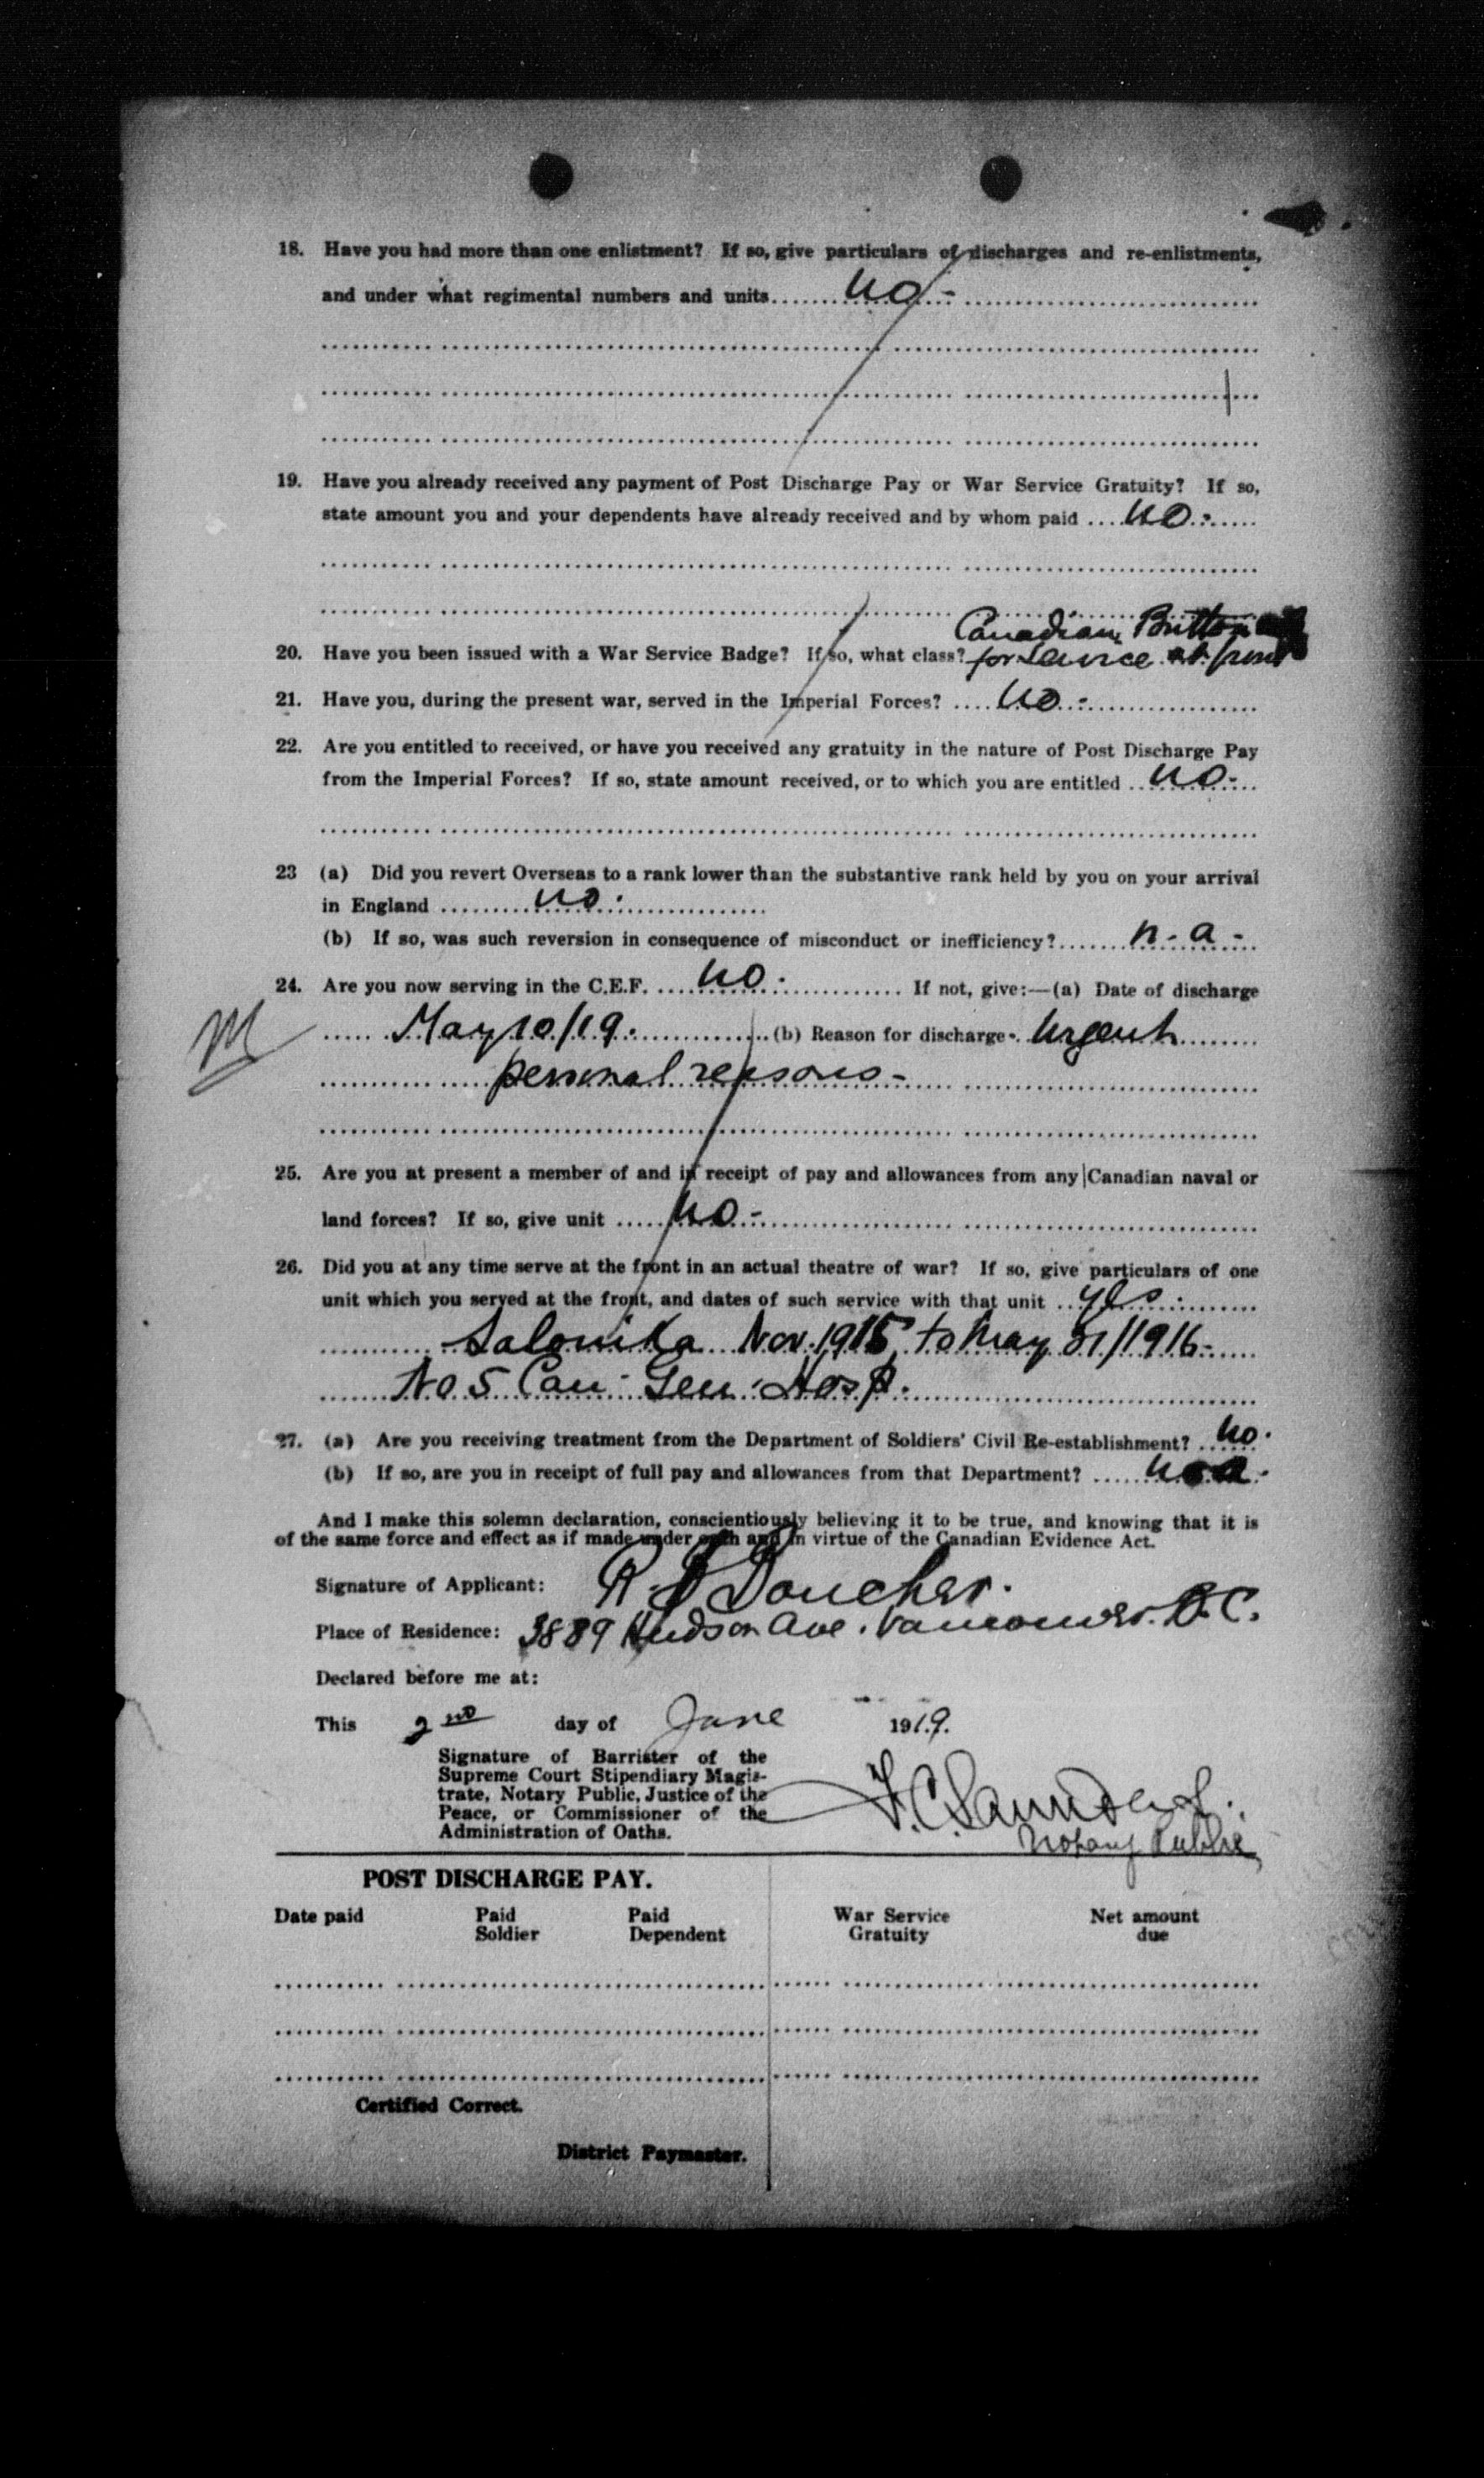 18. Have you had more than one enlistment? If so, give particulars of discharges and re-enlistments,
and under what regimental numbers and units........ no -
19. Have you already received any payment of Post Discharge Pay or War Service Gratuity? If so,
state amount you and your dependents have already received and by whom paid .... no -
Canadian Button
20. Have you been issued with a War Service Badge? If so, what class? for Service at front
21. Have you, during the present war, served in the Imperial Forces? .... no -
22. Are you entitled to received, or have you received any gratuity in the nature of Post Discharge Pay
from the Imperial Forces? If so, state amount received, or to which you are entitled .. no -
23 (a) Did you revert Overseas to a rank lower than the substantive rank held by you on your arrival
in England .......... no.
(b) If so, was such reversion in consequence of misconduct or inefficiency?....... n - a -
24. Are you now serving in the C.E.F. .... no. If not, give:—(a) Date of discharge
M
May 10/19. (b) Reason for discharge - Urgent
personal reasons -
25. Are you at present a member of and in receipt of pay and allowances from any Canadian naval or
land forces? If so, give unit ..... no -
26. Did you at any time serve at the front in an actual theatre of war? If so, give particulars of one
unit which you served at the front, and dates of such service with that unit .. yes.
Salonika Nov. 1915 to May 31/1916 -
No 5 Can. Gen. Hosp.
27. (a) Are you receiving treatment from the Department of Soldiers' Civil Re-establishment? .. no.
(b) If so, are you in receipt of full pay and allowances from that Department? ......
And I make this solemn declaration, conscientiously believing it to be true, and knowing that it is
of the same force and effect as if made under oath and in virtue of the Canadian Evidence Act.
Signature of Applicant: R. B Boucher.
Place of Residence: 3889 Hudson Ave. Vancouver. B.C.
Declared before me at:
This 2nd day of June 1919.
Signature of Barrister of the
Supreme Court Stipendiary Magis-
trate, Notary Public, Justice of the
Peace, or Commissioner of the
Administration of Oaths.
F. C. Saunders.
Notary Public
POST DISCHARGE PAY.
Date paid Paid Soldier Paid Dependent War Service Gratuity Net amount due
Certified Correct.
District Paymaster.